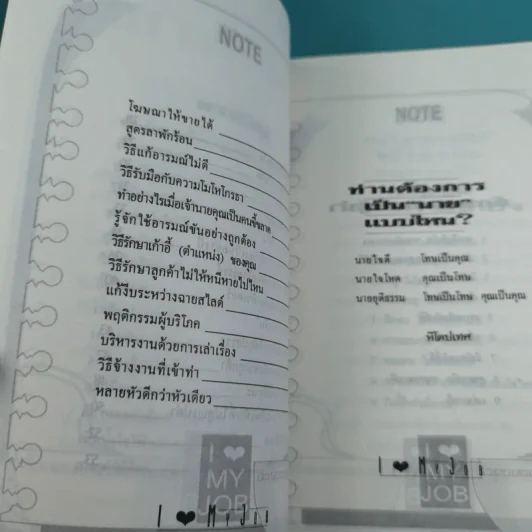 NOTE
โฆษณาให้ขายได้
สูตรลาพักร้อน
วิธีแก้อารมณ์ไม่ดี
วิธีรับมือกับความโมโหโกรธา
ทำอย่างไรเมื่อเจ้านายคุณเป็นคนขี้ขลาด
รู้จักใช้อารมณ์ขันอย่างถูกต้อง
วิธีรักษาเก้าอี้ (ตำแหน่ง) ของคุณ
วิธีรักษาลูกค้าไม่ให้หนีหายไปไหน
แก้งีบระหว่างฉายสไลด์
พฤติกรรมผู้บริโภค
บริหารงานด้วยการเล่าเรื่อง
วิธีจ้างงานที่เข้าท่า
หลายหัวดีกว่าหัวเดียว
I ❤ MY JOB
I ❤ My Job
NOTE
ท่านต้องการ
เป็น "นาย"
แบบไหน?
นายใจดี โทษเป็นคุณ
นายใจโหด คุณเป็นโทษ
นายยุติธรรม โทษเป็นโทษ คุณเป็นคุณ
หิโตปเทศ
I ❤ MY JOB
I ❤ My Job